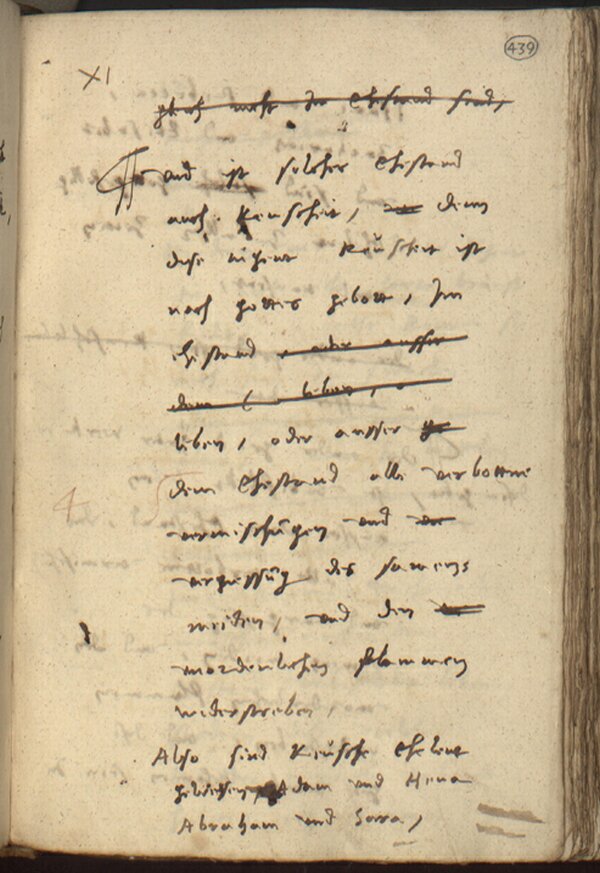 439
XI
nicht der Ehestand sind,
und ist solcher Ehestand
auch Keuscheit, denn
dise eigent Keuscheit ist
nach gottes gebott, Im
ehestand oder ausser
dem leben,
leben, oder ausser
dem Ehestand alle verbottene
vermischungen und
vergiessung des samens
meiden, und den
mordenlichen flammen
widerstreben,
Also sind Keusche Eheleut
gewesen, Adam und Heua
Abraham und Sara,